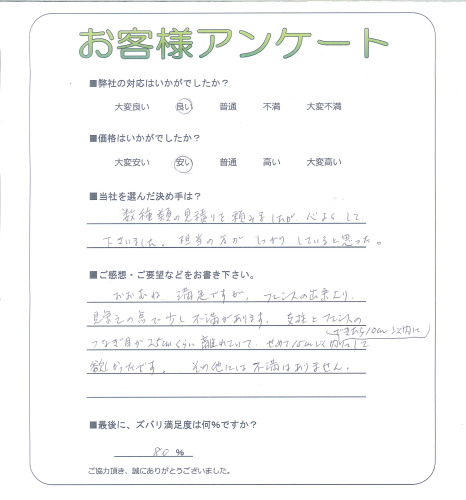 お客様アンケート
■弊社の対応はいかがでしたか?
大変良い 良い 普通 不満 大変不満
■価格はいかがでしたか?
大変安い 安い 普通 高い 大変高い
■当社を選んだ決め手は?
数種類の見積りを頼みましたが、心よくして
下さいました。担当の方がしっかりしていると思った。
■ご感想・ご要望などをお書き下さい。
おおむね、満足ですが、フェンスの出来上り、
見栄えの点で少し不満があります。支柱とフェンスの
できたら10cm以内に
つなぎ目が25cmくらい離れていて、せめて15cm以内にして
欲しかったです。その他には不満はありません。
■最後に、ズバリ満足度は何%ですか?
80 %
ご協力頂き、誠にありがとうございました。